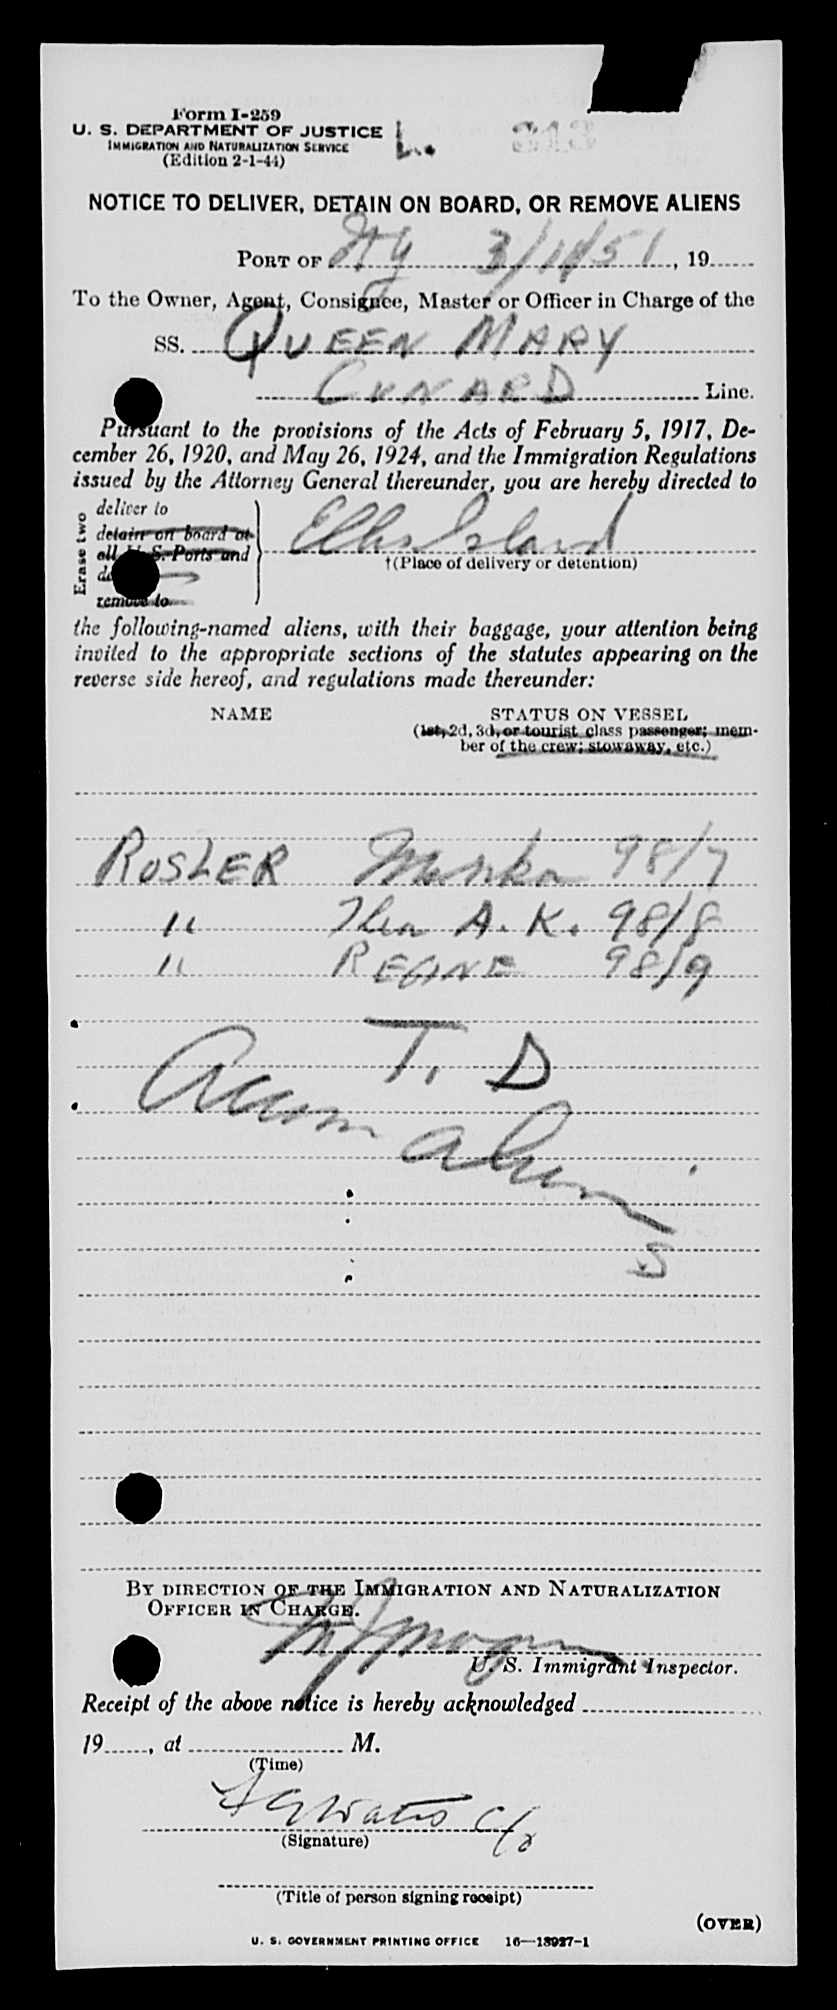 Form I-259
U. S. DEPARTMENT OF JUSTICE
IMMIGRATION AND NATURALIZATION SERVICE
(Edition 2-1-44)
L. 213
NOTICE TO DELIVER, DETAIN ON BOARD, OR REMOVE ALIENS
PORT OF NY 3/1/51, 19
To the Owner, Agent, Consignee, Master or Officer in Charge of the
SS. QUEEN MARY
CUNARD Line.
Pursuant to the provisions of the Acts of February 5, 1917, De-
cember 26, 1920, and May 26, 1924, and the Immigration Regulations
issued by the Attorney General thereunder, you are hereby directed to
Erase two
deliver to
detain on board at
all U. S. Ports and
remove to
Ellis Island
†(Place of delivery or detention)
the following-named aliens, with their baggage, your attention being
invited to the appropriate sections of the statutes appearing on the
reverse side hereof, and regulations made thereunder:
NAME STATUS ON VESSEL
(1st, 2d, 3d, or tourist class passenger; mem-
ber of the crew; stowaway, etc.)
ROSLER 98/7
" A. K. 98/8
" 98/9
T. D
BY DIRECTION OF THE IMMIGRATION AND NATURALIZATION
OFFICER IN CHARGE.
U. S. Immigrant Inspector.
Receipt of the above notice is hereby acknowledged
19, at M.
(Time)
(Signature)
(Title of person signing receipt)
(OVER)
U. S. GOVERNMENT PRINTING OFFICE 16—18927-1